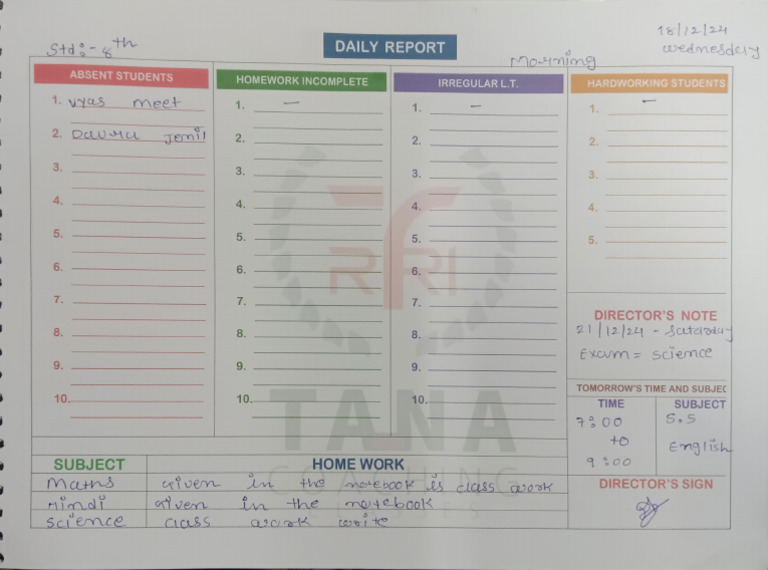 Std:- 8th
DAILY REPORT
18/12/24
Wednesday
Morning
ABSENT STUDENTS
1. Vyas meet
2. Davra Jemil
3.
4.
5.
6.
7.
8.
9.
10.
HOMEWORK INCOMPLETE
1. —
2.
3.
4.
5.
6.
7.
8.
9.
10.
IRREGULAR L.T.
1. —
2.
3.
4.
5.
6.
7.
8.
9.
10.
HARDWORKING STUDENTS
1. —
2.
3.
4.
5.
DIRECTOR'S NOTE
21/12/24 - Saterday
Exam = science
TOMORROW'S TIME AND SUBJEC
TIME
7:00
to
9:00
SUBJECT
S.S
English
DIRECTOR'S SIGN
SUBJECT HOME WORK
Maths given in the notebook is class work
Hindi given in the notebook
Science class work write
RFRI
TANA
COACHING
CLASSES